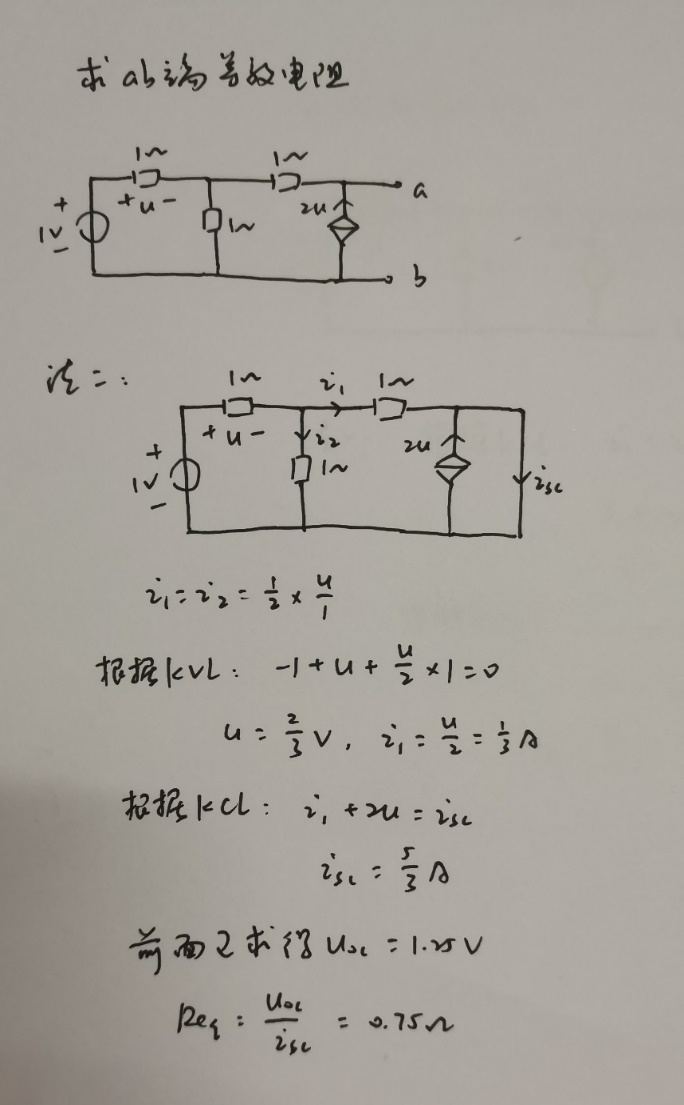 求ab端等效电阻
1Ω 1Ω
+ u - 1Ω 2u a
+
1V
-
b
法二:
1Ω i₁ 1Ω
+ u - i₂ 2u
+
1V 1Ω isc
-
i₁=i₂=1/2×u/1
根据KVL: -1+u+u/2×1=0
u=2/3V, i₁=u/2=1/3A
根据KCL: i₁+2u=isc
isc=5/3A
前面已求得uoc=1.25V
Req=uoc/isc=0.75Ω